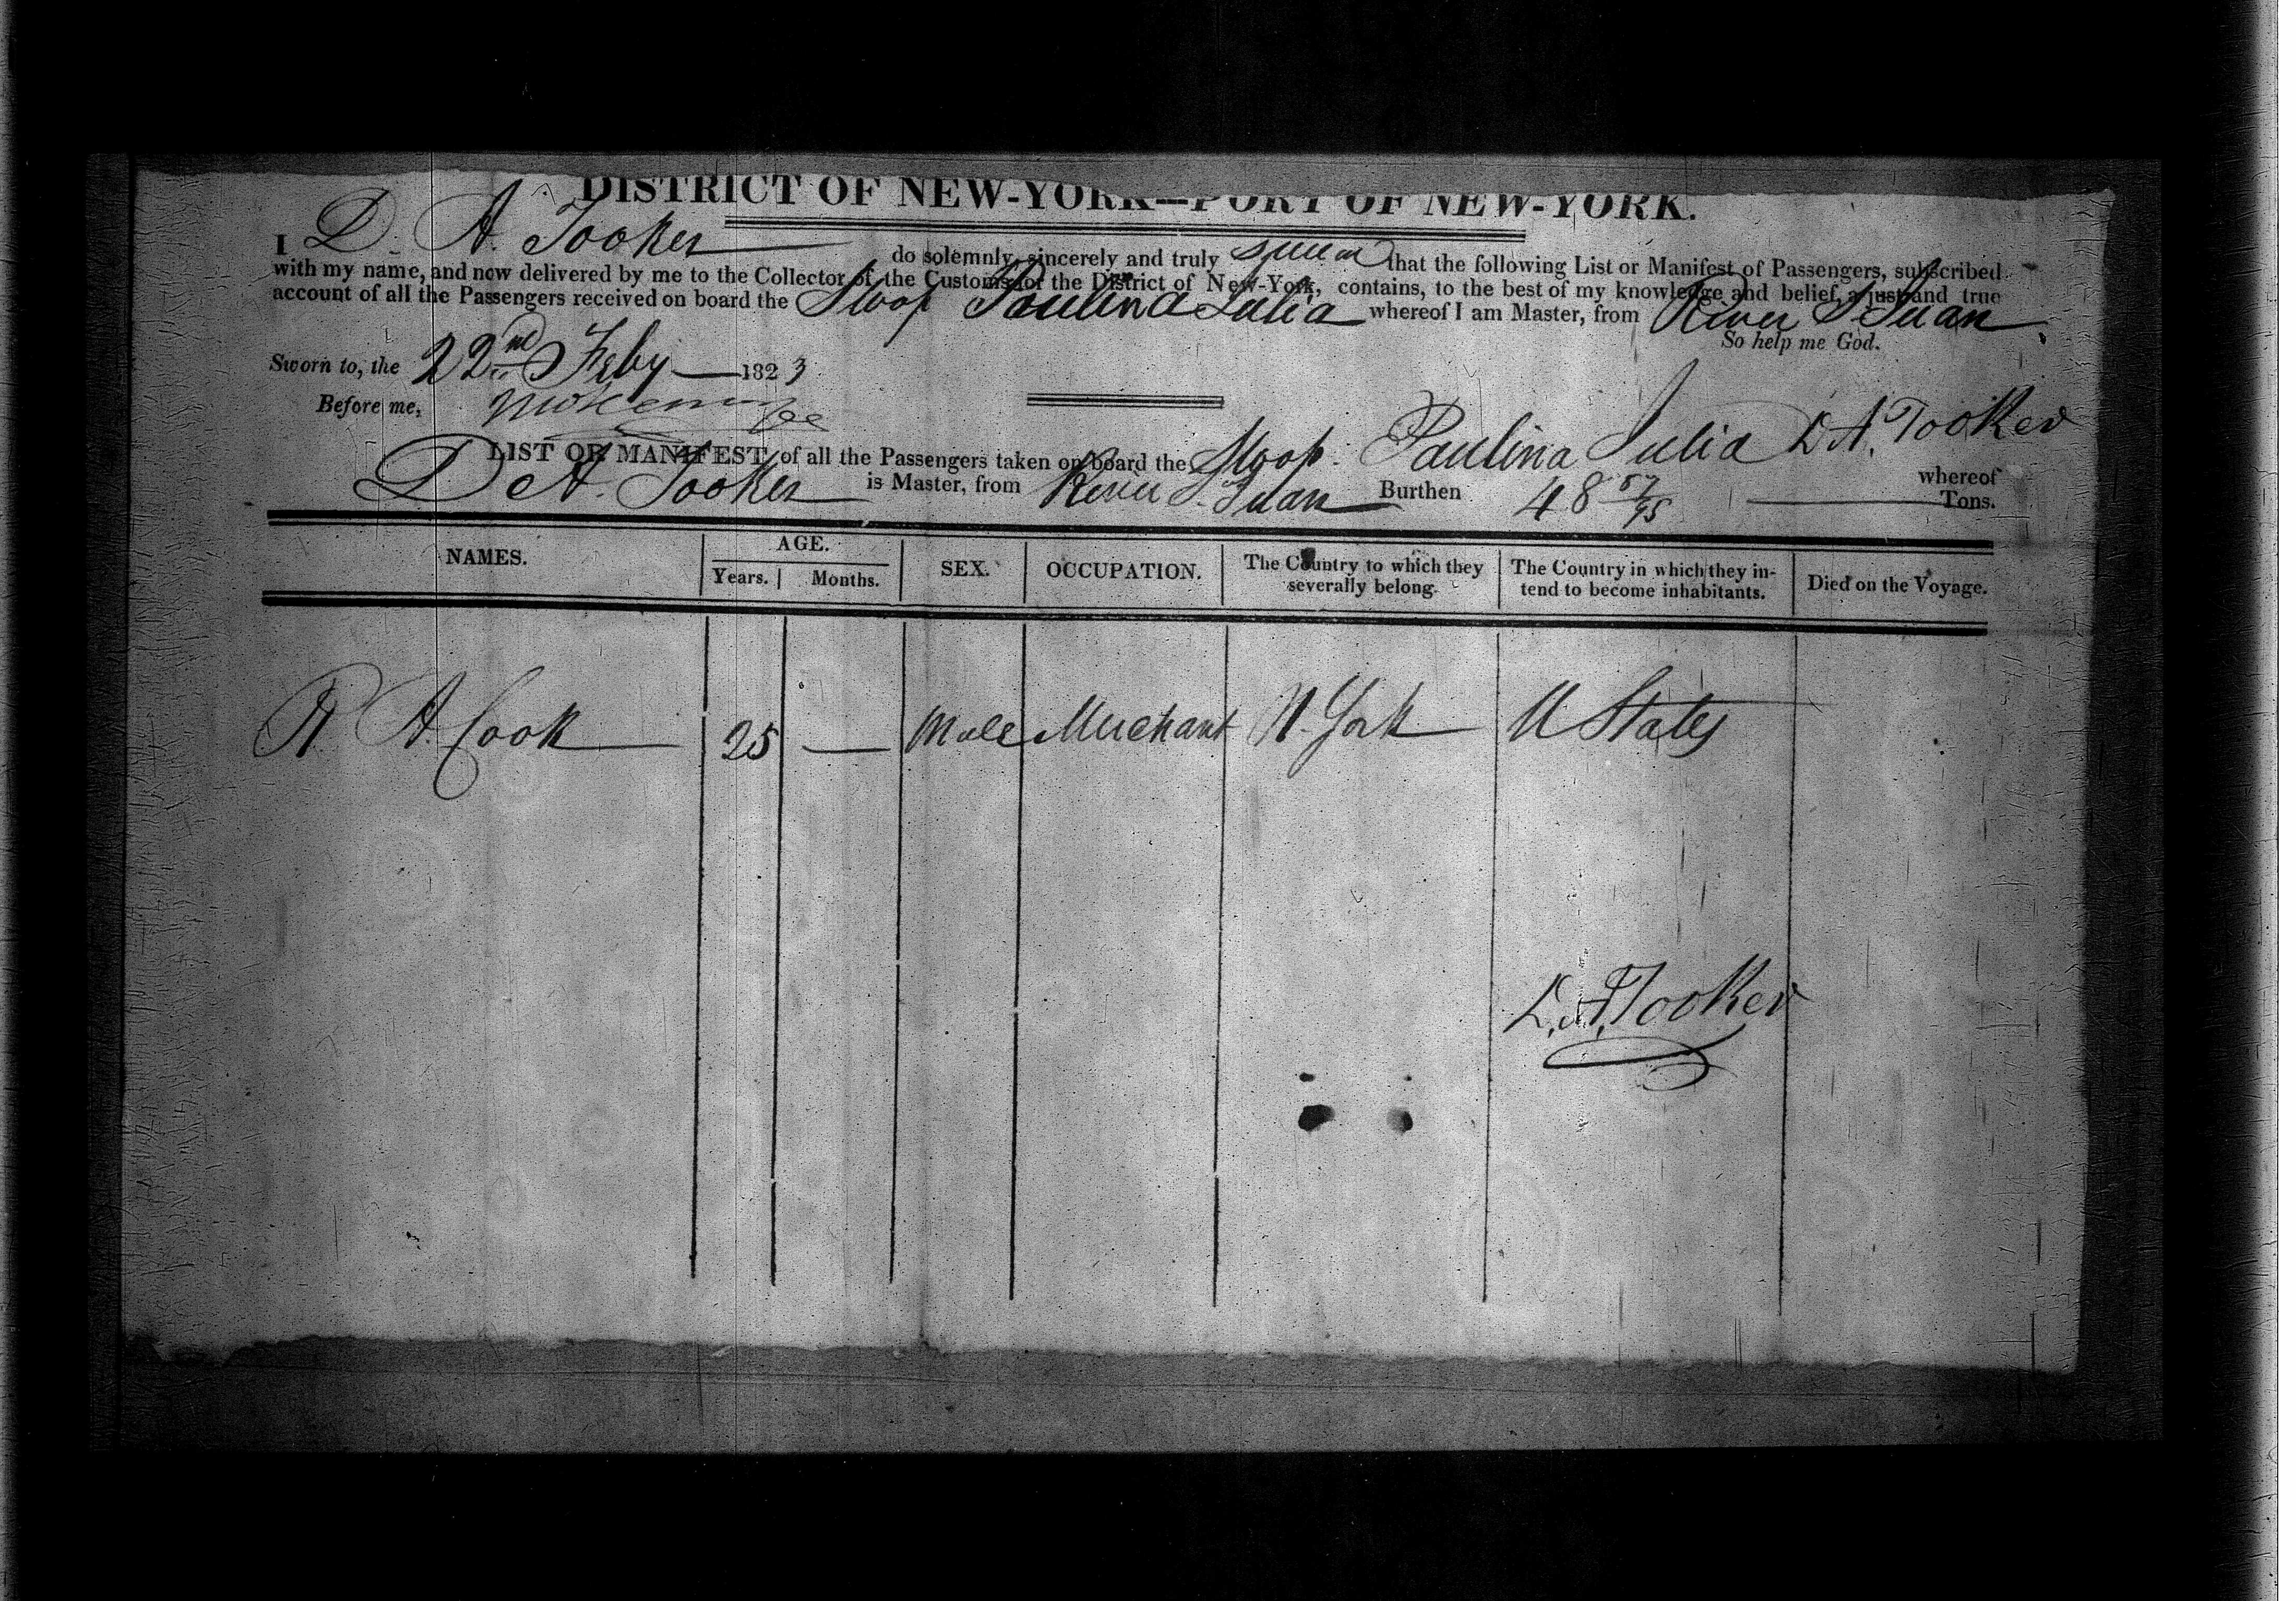 DISTRICT OF NEW-YORK—PORT OF NEW-YORK.
I D. A. Tooker do solemnly, sincerely and truly swear that the following List or Manifest of Passengers, subscribed
with my name, and now delivered by me to the Collector of the Customs for the District of New-York, contains, to the best of my knowledge and belief, a just and true
account of all the Passengers received on board the Sloop Paulina Julia whereof I am Master, from River St Juan
So help me God.
Sworn to, the 22nd Feby 1823
Before me,
D A. Tooker
LIST OR MANIFEST of all the Passengers taken on board the Sloop Paulina Julia whereof
D A. Tooker is Master, from River St Juan Burthen 48 57/95 Tons.
NAMES. AGE. SEX. OCCUPATION. The Country to which they severally belong. The Country in which they intend to become inhabitants. Died on the Voyage.
Years. Months.
R A. Cook 25 — Male Merchant N. York U States
D. A. Tooker